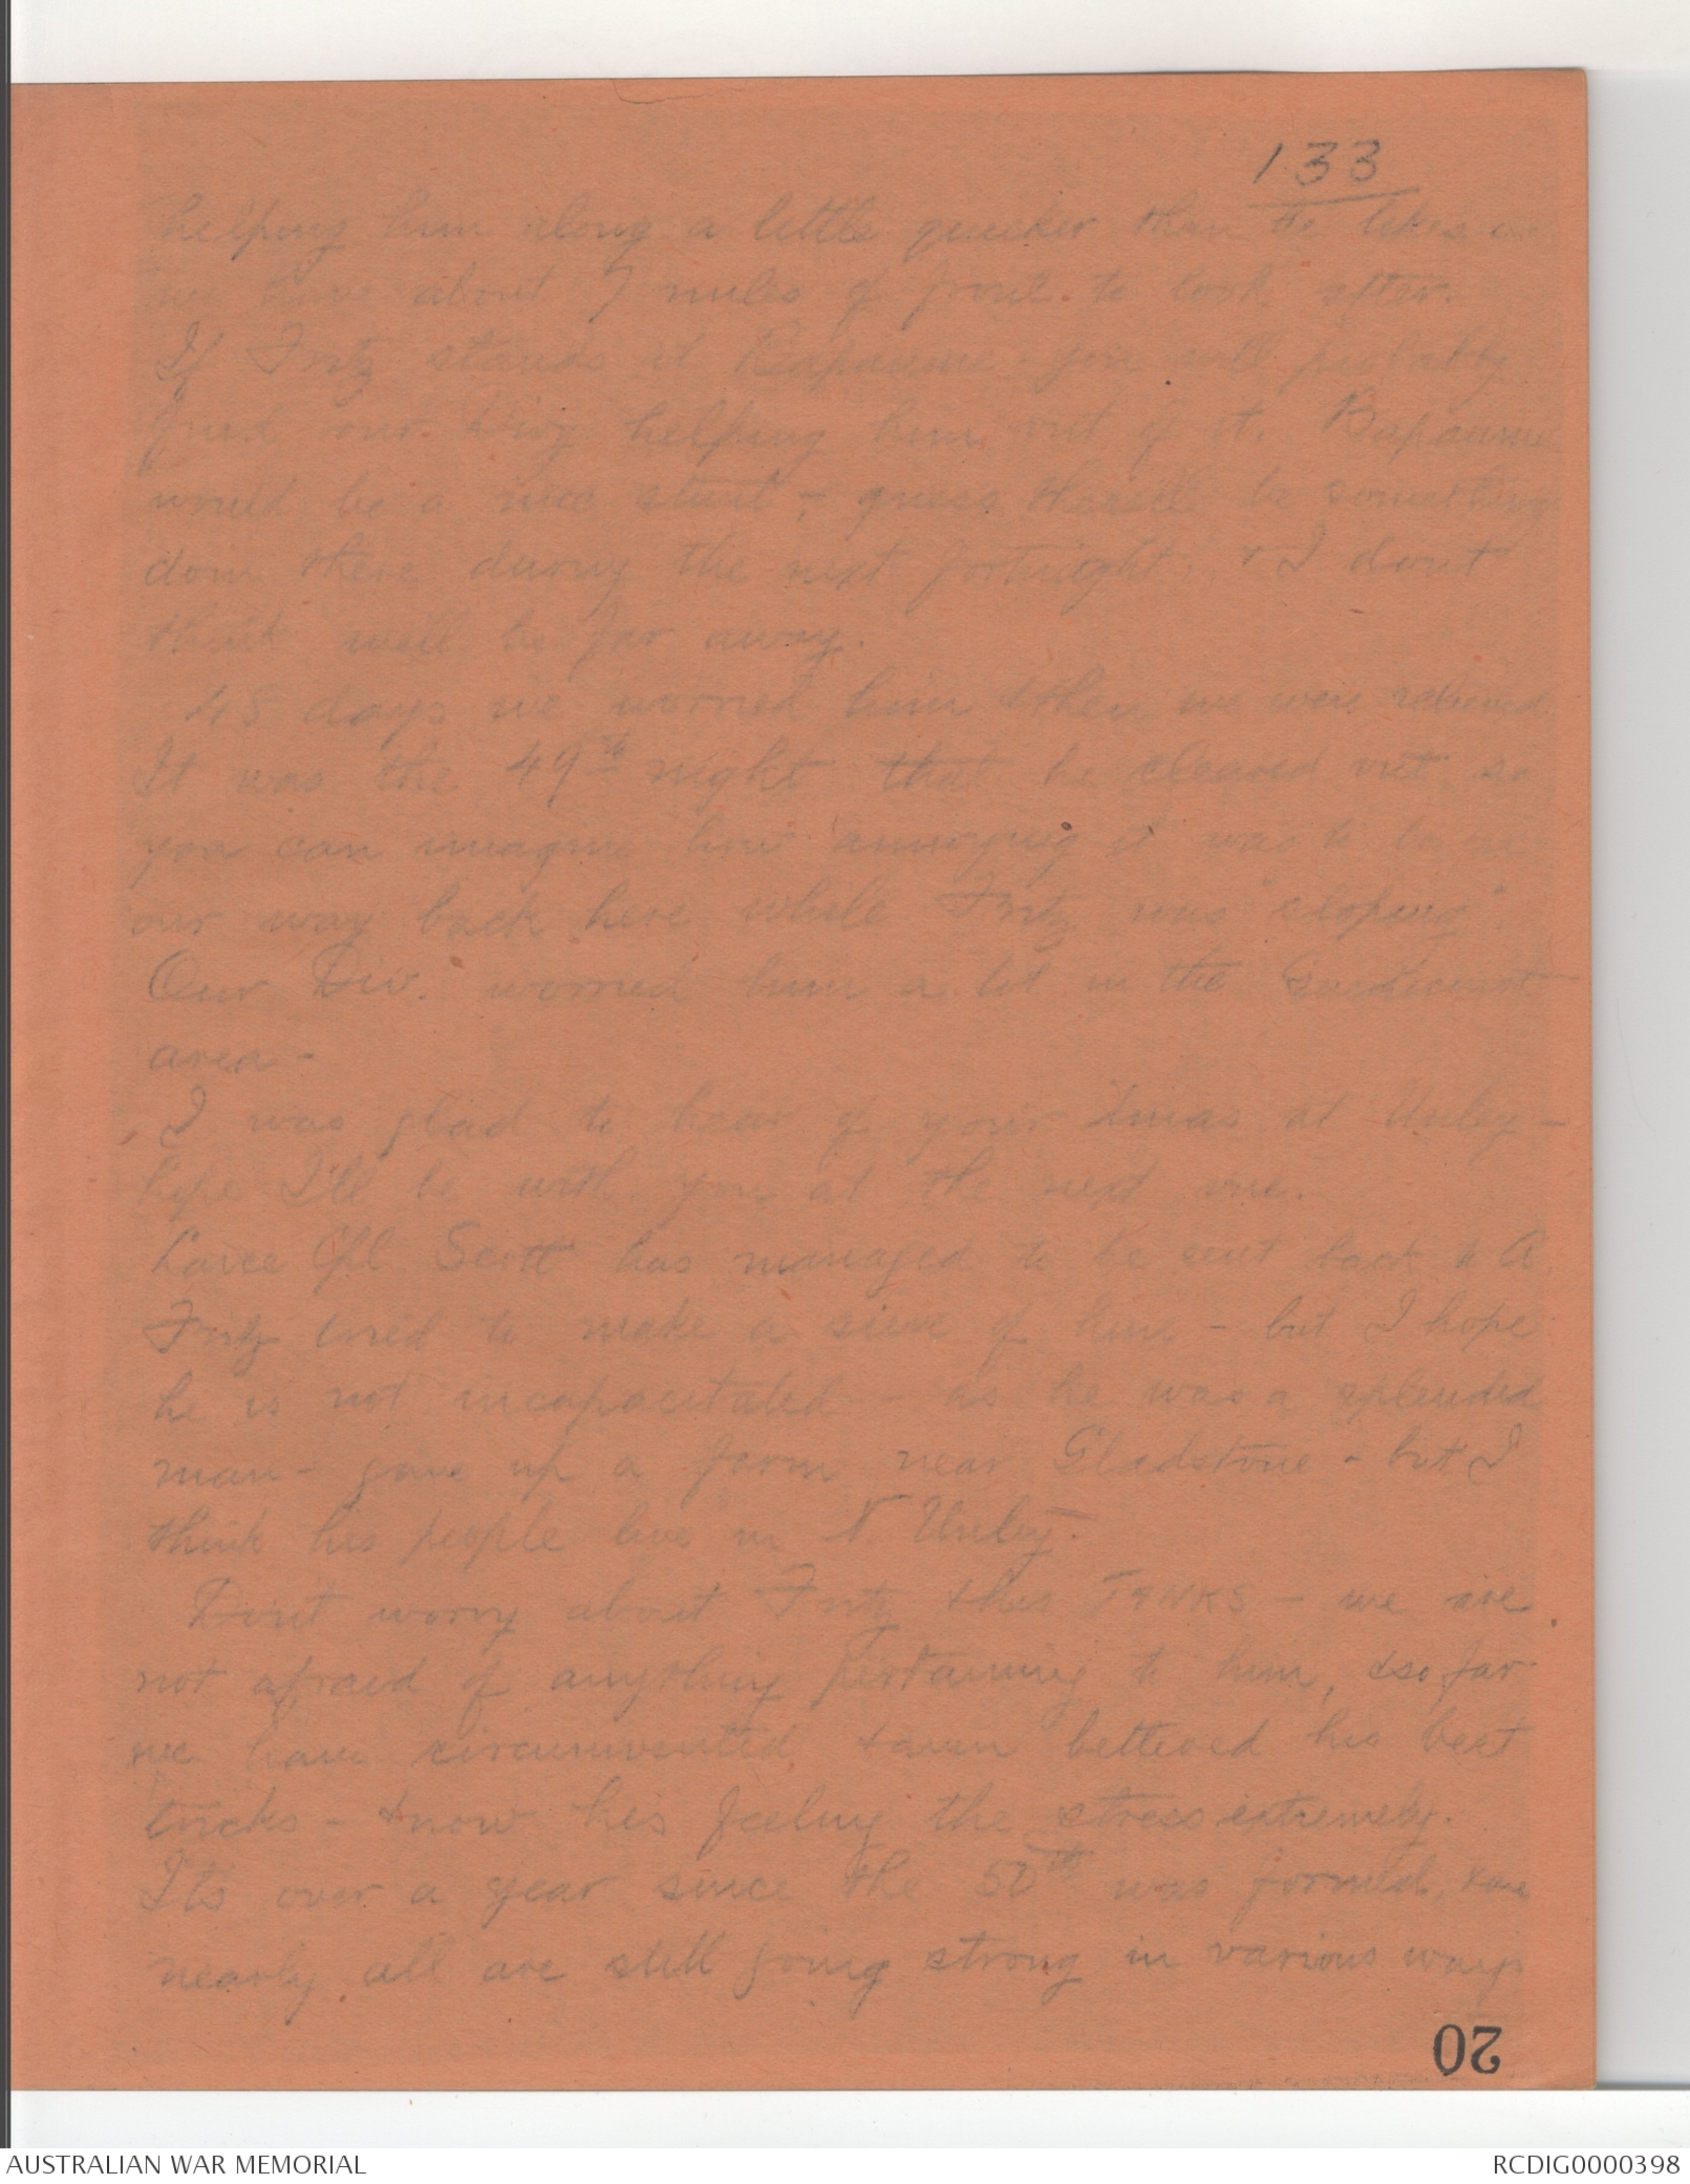 133
helping him along a little quicker than he likes
we have about 7 miles of front to look after.
If Fritz stands at Bapaume - you will probably
find our Divy helping him out of it. Bapaume
would be a nice stunt - guess there'll be something
doin there during the next fortnight, & I dont
think we'll be far away.
48 days we worried him & then we were relieved
It was the 49th night that he cleared out, so
you can imagine how annoying it was to be on
our way back here while Fritz was "sloping".
Our Div. worried him a lot in the Gueudecourt
area -
I was glad to hear of your Xmas at Unley -
hope I'll be with you at the next one.
Lance Cpl Scott has managed to be sent back to A.
Fritz tried to make a sieve of him - but I hope
he is not incapacitated - as he was a splendid
man - gave up a farm near Gladstone - but I
think his people live in N. Unley.
Dont worry about Fritz & his TANKS - we are
not afraid of anything pertaining to him, & so far
we have circumvented & even bettered his best
tricks - & now his feeling the stress extremely.
Its over a year since the 50th was formed, & we
nearly all are still going strong in various ways
20
AUSTRALIAN WAR MEMORIAL
RCDIG0000398